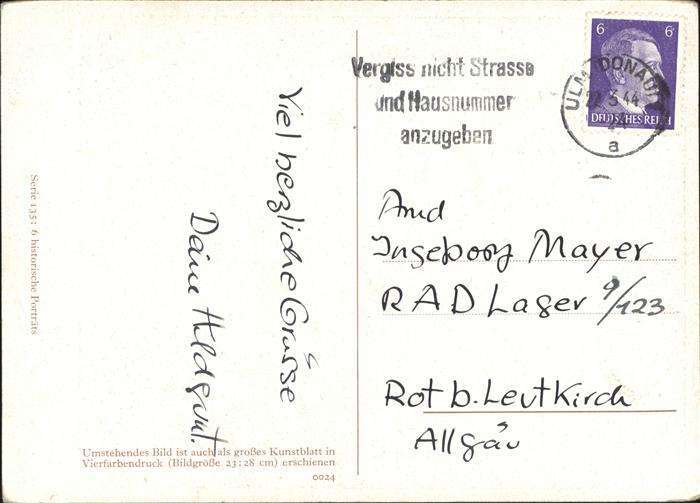 Serie 135: 6 historische Porträts
Viel herzliche Grüsse
Deine Hildegunt.
Umstehendes Bild ist auch als großes Kunstblatt in
Vierfarbendruck (Bildgröße 23:28 cm) erschienen
0024
Vergiss nicht Strasse
und Hausnummer
anzugeben
6 6
DEUTSCHES REICH
ULM (DONAU)
5.44
a
Amd
Ingeborg Mayer
RAD Lager 9/123
Rot b. Leutkirch
Allgäu